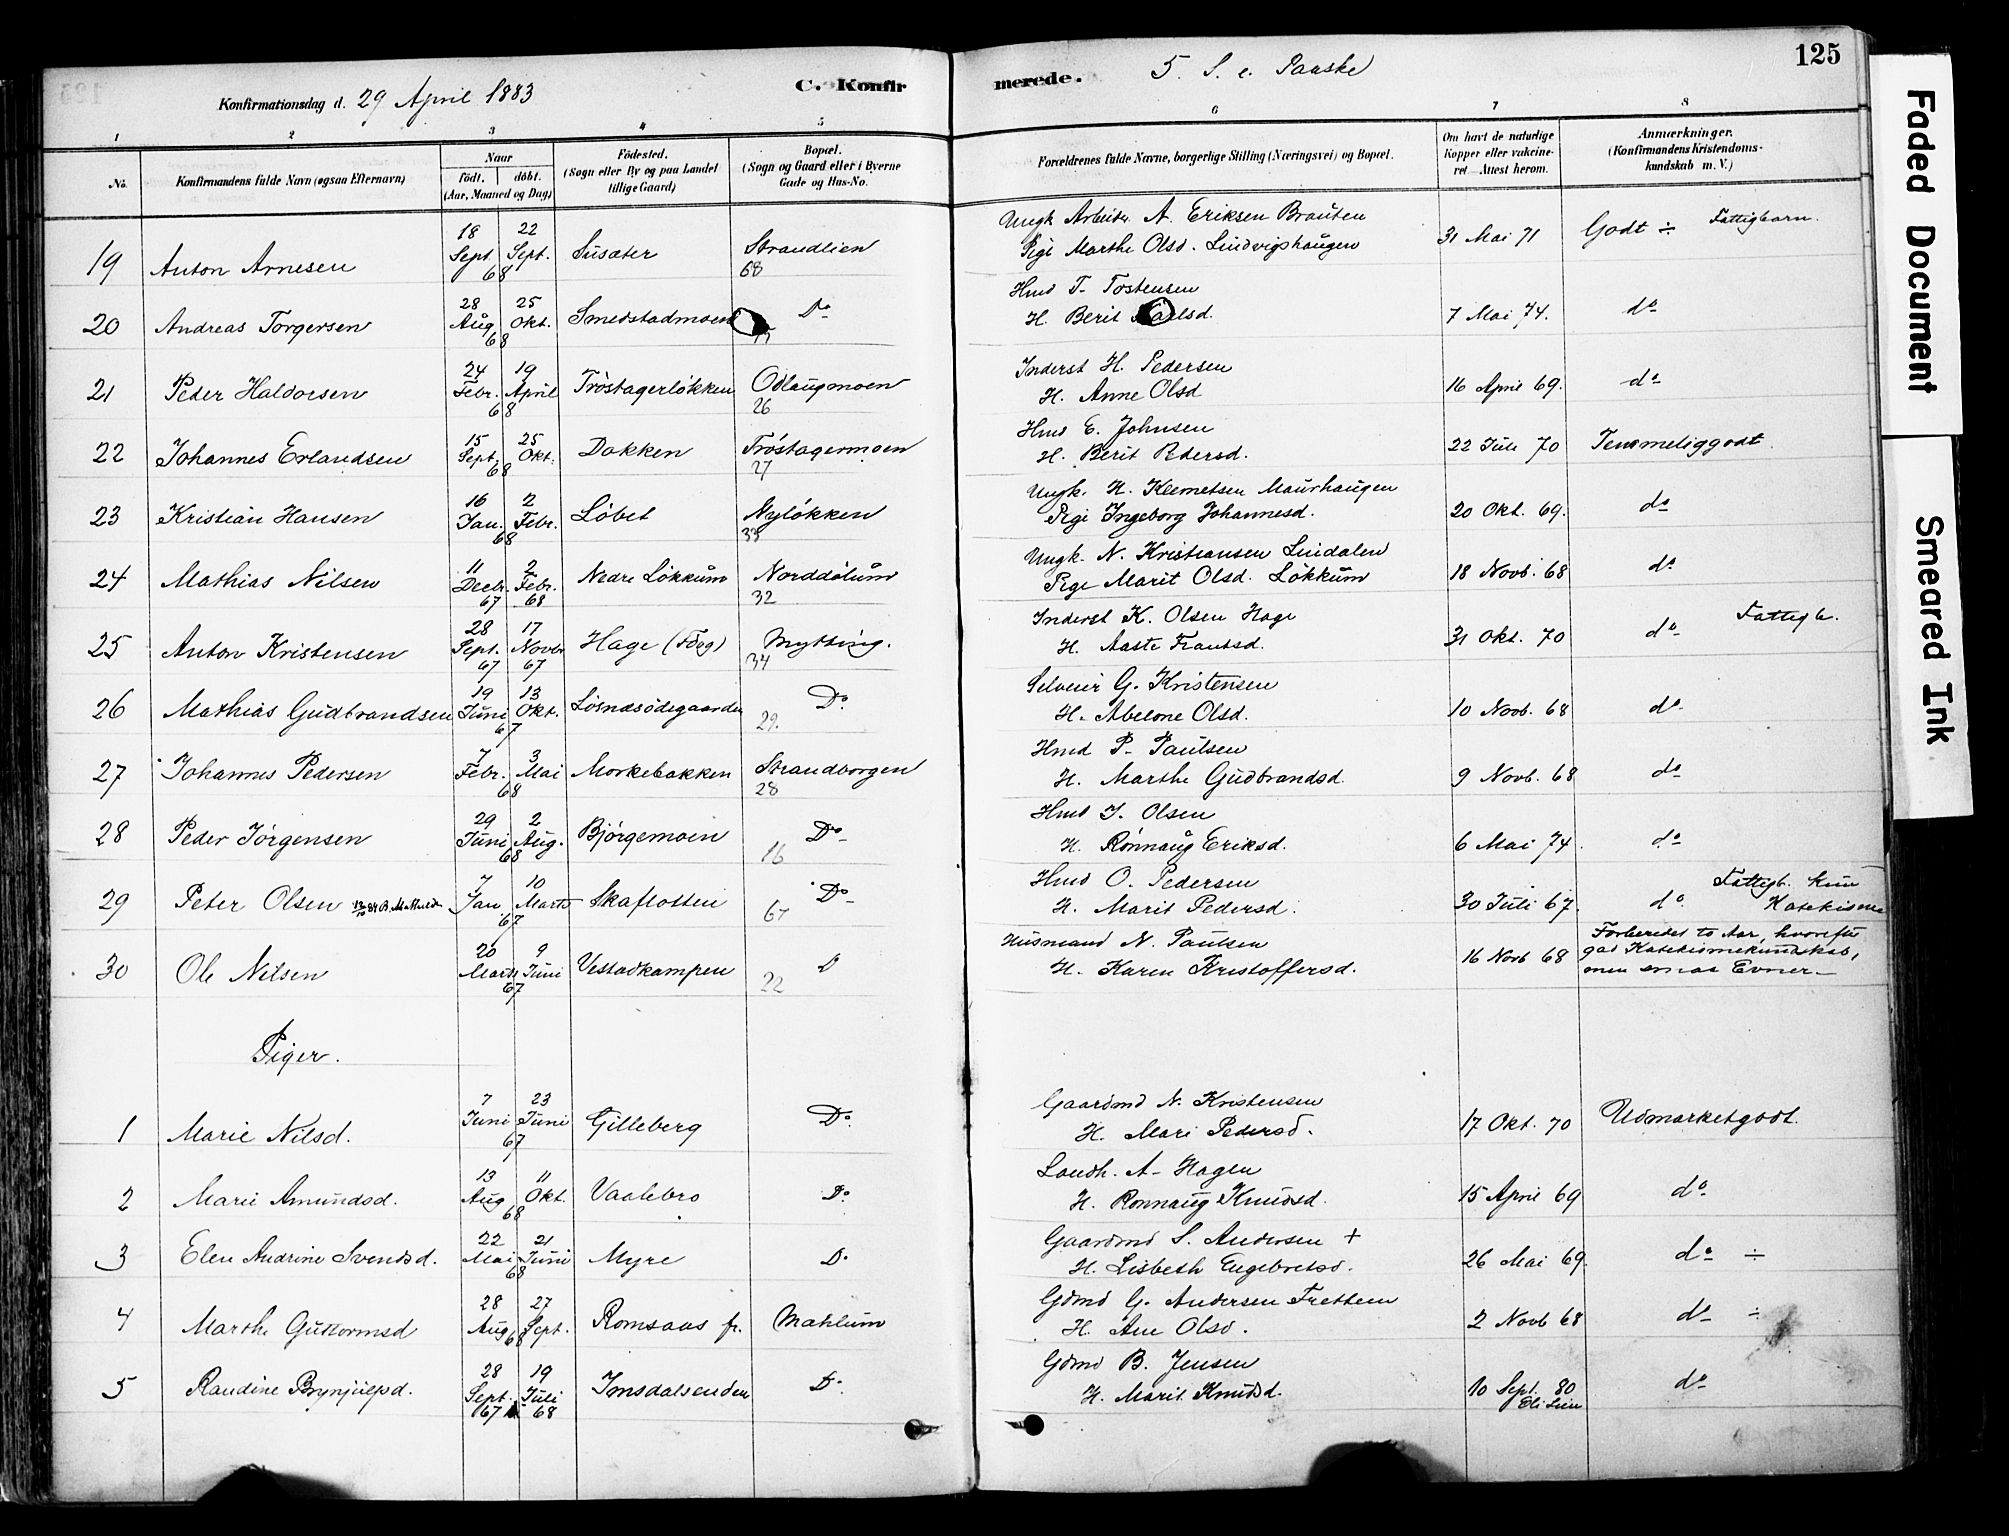 125
Konfirmationsdag d. 29 April 1883
C. Konfirmerede.
5. S. e. Paaske
1 2 3 4 5 6 7 8
No.
Konfirmandens fulde Navn (ogsaa Efternavn)
Naar
født. døbt.
(Aar, Maaned og Dag)
Fødested.
(Sogn eller By og paa Landet
tillige Gaard)
Bopæl.
(Sogn og Gaard eller i Byerne
Gade og Hus-No.
Forældrenes fulde Navne, borgerlige Stilling (Næringsvei) og Bopæl.
Om havt de naturlige
Kopper eller vakcine-
ret. – Attest herom.
Anmærkninger.
(Konfirmandens Kristendoms-
kundskab m. V.)
19 Anton Arnesen 18 Sept. 22 Sept. 68 Susæter Strandlien 68
Ungk. Arbeider A. Eriksen Brauten
Pige Marthe Olsd. Lindvigshaugen
31 Mai 71 Godt ÷ Fattigbarn.
20 Andreas Torgersen 28 Aug 25 Okt. 68 Smedstadmoen Do
Hmd T. Tostensen
H. Berit
7 Mai 74. do
21 Peder Haldorsen 24 Febr. 19 April 68 Trøstagerløkken Odlaugmoen 26
Inderst H. Pedersen
H. Anne Olsd
16 April 69. do
22 Johannes Erlandsen 15 Sept. 25 Okt. 68 Dokken Trøstagermoen 27
Hmd E. Johnsen
H. Berit Pedersd.
22 Juli 70 Temmeliggodt.
23 Kristian Hansen 16 Jan. 2 Febr. 68 Løbet Nyløkken 33
Ungk. H. Klemetsen Maurhaugen
Pige Ingeborg Johannesd.
20 Okt. 69. do
24 Mathias Nilsen 11 Decbr. 67 2 Febr. 68 Nedre Løkkum Norddølum 32
Ungk. N. Kristiansen Lindalen
Pige Marit Olsd. Løkkum
18 Novb. 68 do
25 Anton Kristensen 28 Sept. 67 17 Novbr 67 Hage Mytting. 34
Inderst K. Olsen Hage
H. Aaste Frantsd.
31 Okt. 70 do Fattigb.
26 Mathias Gudbrandsen 19 Juni 13 Okt. 67 Løsnæsødegaarden Do 29.
Selveier G. Kristensen
H. Abelone Olsd.
10 Novb. 68 do
27 Johannes Pedersen 7 Febr. 3 Mai 68 Morkebakken Strandborgen 28
Hmd P. Paulsen
H. Marthe Gudbrandsd.
9 Novb. 68 do
28 Peder Jørgensen 29 Juni 2 Aug. 68 Bjørgemoen Do 16
Hmd J. Olsen
H. Rønnaug Eriksd.
6 Mai 74. do
29 Peter Olsen 7 Jan 10 Marts 67 Skaflotten Do 67
Hmd O. Pedersen
H. Marit Pedersd.
30 Juli 67. do Fattigb. kun
Katekisme
30 Ole Nilsen 20 Marts 9 Juni 67 Vestadkampen D 22
Husmand N. Paulsen
H. Karen Kristoffersd.
16 Novb 68 Forberedet to Aar, hvorefter
god Katekismekundskab,
men smaa Evner
Piger.
1 Marie Nilsd. 7 Juni 23 Juni 67 Gilleberg Do
Gaardmd N. Kristensen
H. Mari Pedersd.
17 Okt. 70 Udmærketgodt.
2 Marie Amundsd. 13 Aug 11 Okt. 68 Vaalebro Do
Landh. A. Hagen
H. Rønnaug Knudsd.
15 April 69 do
3 Elen Andrine Svendsd. 22 Mai 21 Juni 68 Myre Do
Gaardmd S. Andersen +
H. Lisbeth Engebretsd.
26 Mai 69. do ÷
4 Marthe Guttormsd 28 Aug 27 Sept. 68 Romsaas fr. Mæhlum
Gdmd G. Andersen Frettem
H. Ane Olsd.
2 Novb 68 do ÷
5 Randine Brynjulfsd. 28 Sept. 67 19 Juli 68 Imsdalsenden Do
Gdmd B. Jensen
H. Marit Knudsd.
10 Sept. 80
Oli Lien
do
Faded Document
Smeared Ink